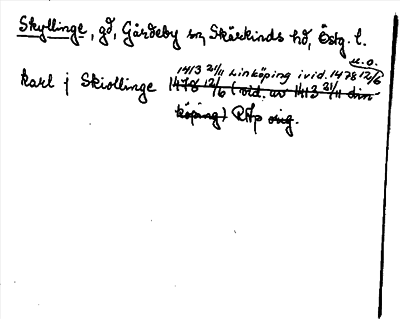 Skyllinge, gd, Gårdeby sn, Skärkinds hd, Östg. l.
u.o.
1413 21/11 Linköping i vid. 1478 12/6
karl j Skiollinge 1478 12/6 (vid. av 1413 21/11 Lin-
köping) RAp orig.